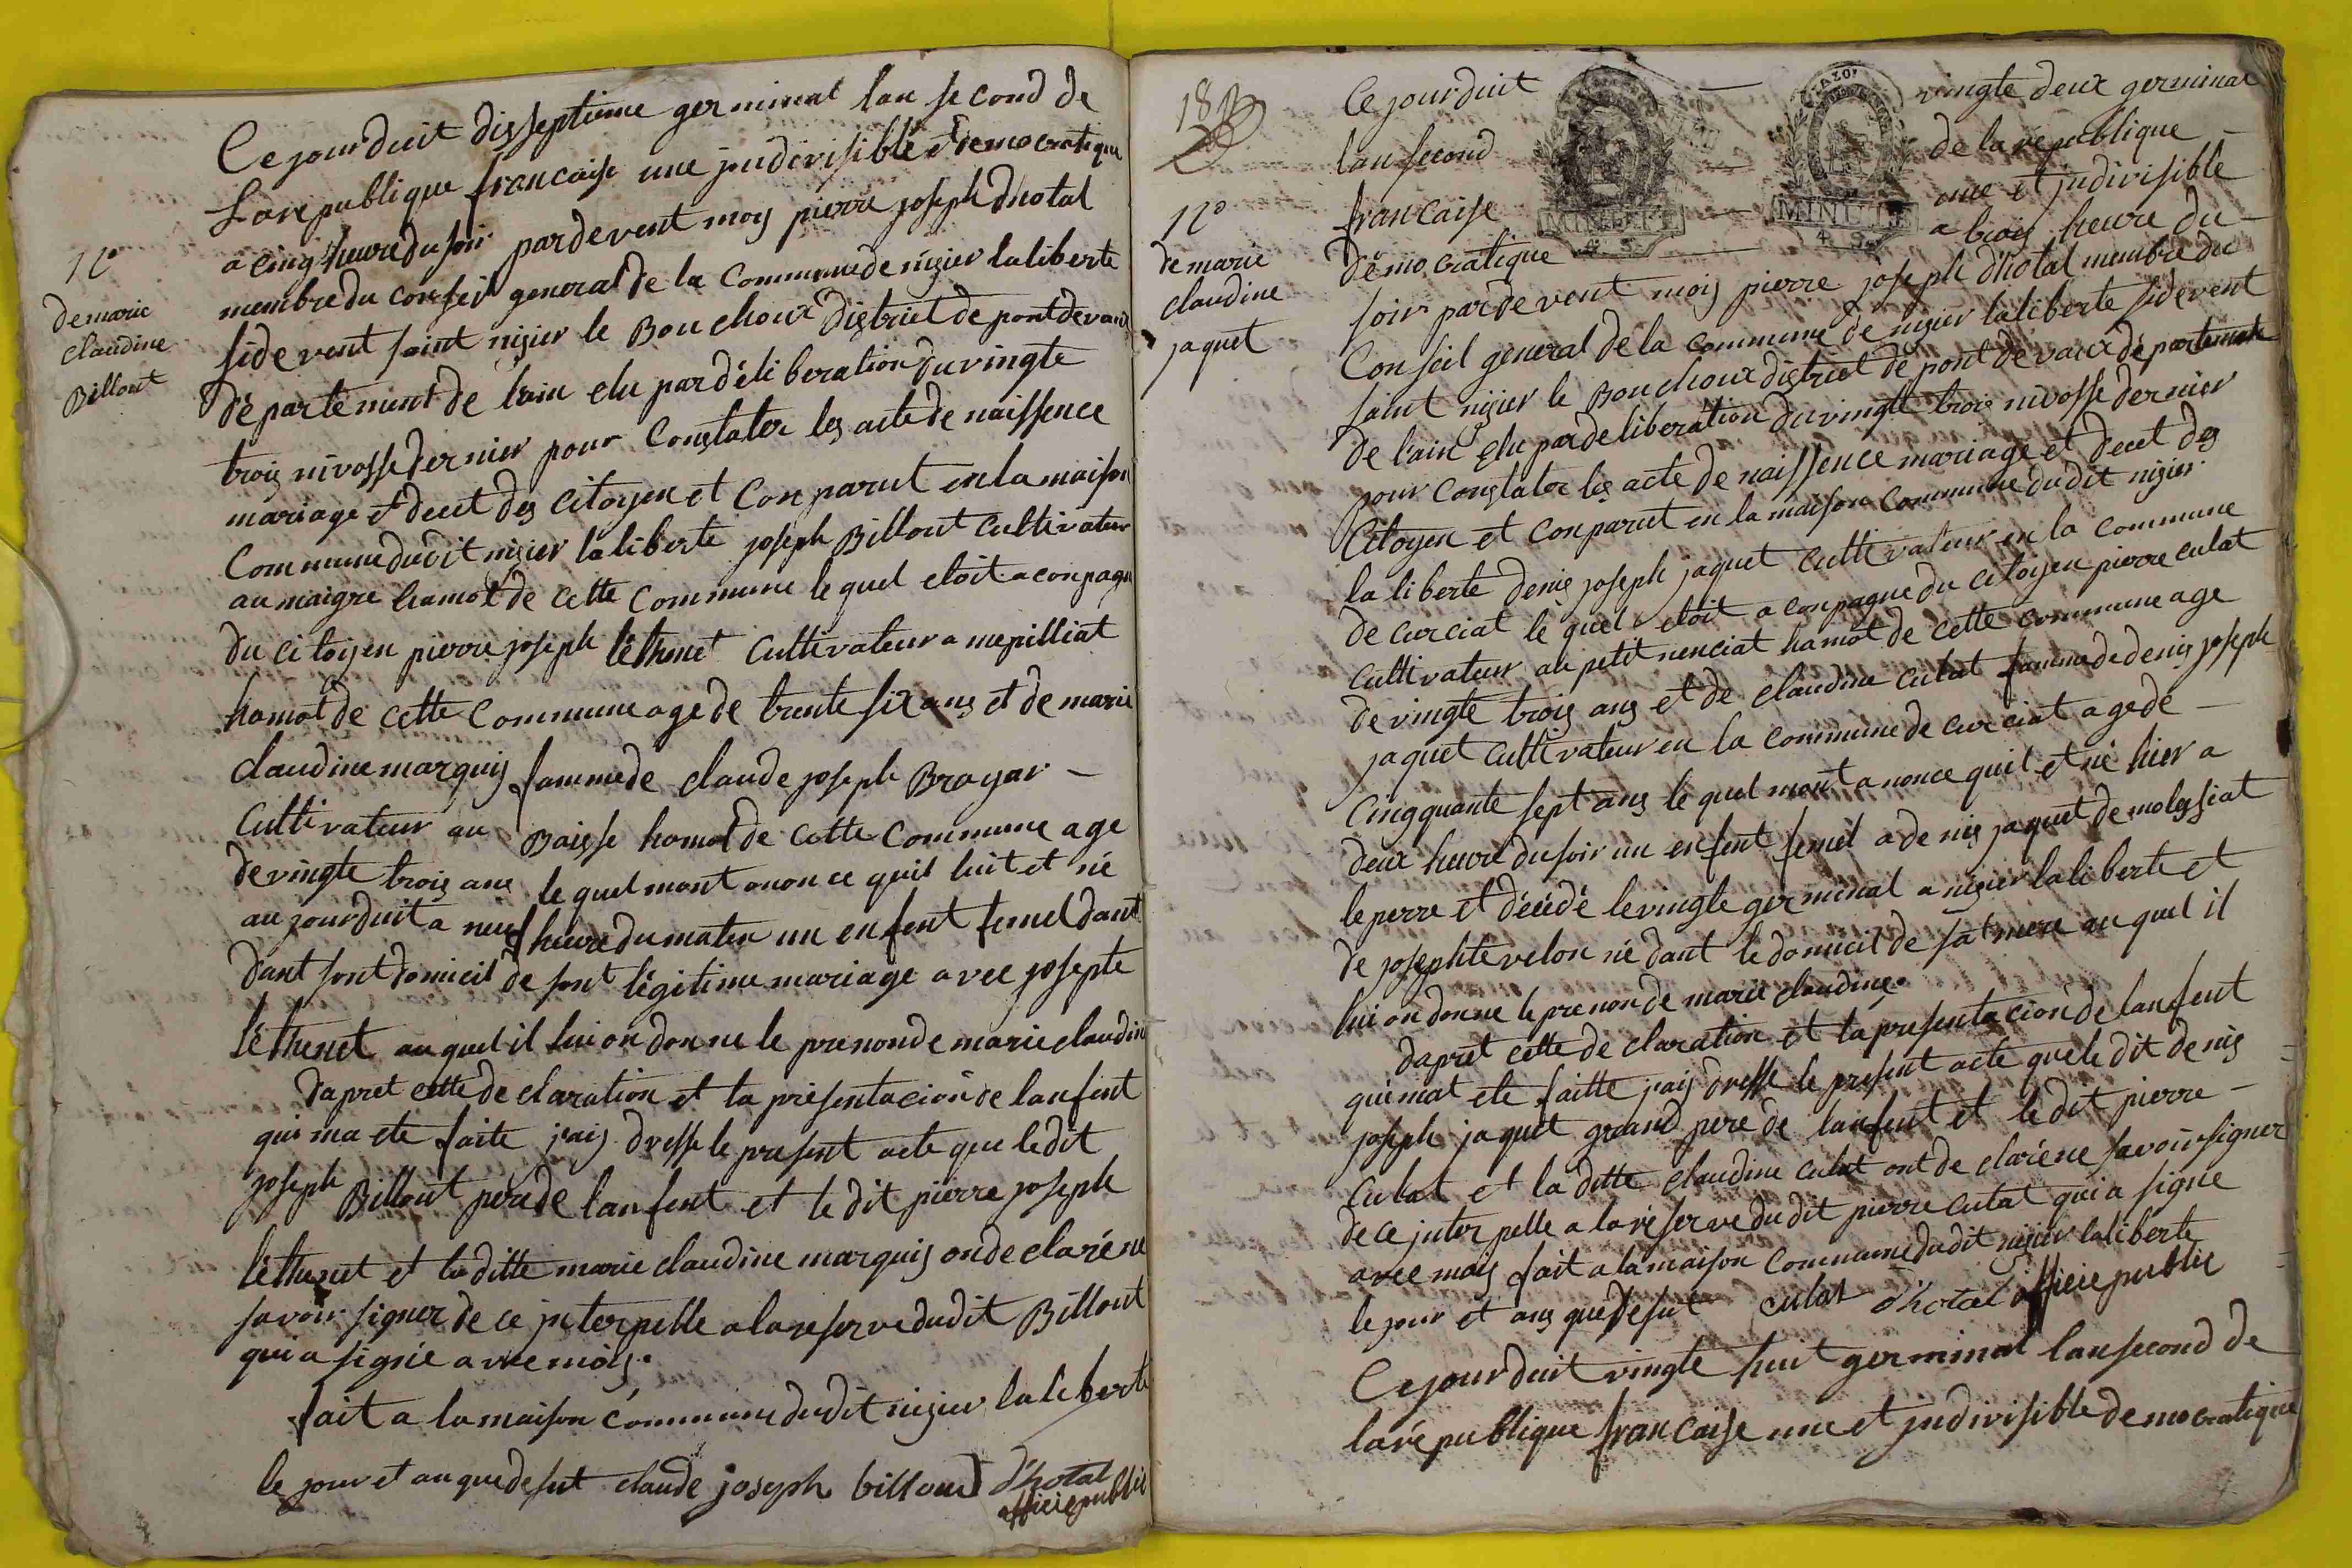 Ce jourduit disseptieme germinal lan second de
La republique francaise une jndivisible et democratique
a cinq heure du soir pardevent moy pierre joseph dhotal
membre du conseil general de la Commune de nizier laliberte
sidevent saint nizier le Bouchoux district de pontdevaux
département de l'ain elu par déliberation du vingte
trois nivosse dernier pour Constater les acte de naissence
mariage et decet des citoyen et Conparut en la maison
Commune dudit nizier la liberte joseph Billout Cultivateur
au maigre hamot de cette Commune le quel etoit aconpagne
du citoyen pierre joseph léthenet Cultivateur a mepilliat
hamot de cette Commune age de trente six ans et de marie
claudine marquis famme de claude joseph Broyar
Cultivateur au Baisse hamot de cette Commune age
de vingte trois ans le quel mont anonce quil luit et né
aujourduit a neuf heure du matin un enfent femel dant
dant sont domicil de sont légitime mariage avec josepte
léthenet au quel il lui on donne le prenon de marie claudine
dapret cette declaration et la présentacion de lanfent
qui ma ete faite jais dresse le present acte que le dit
joseph Billout pere de lanfent et le dit pierre joseph
léthenet et la ditte marie claudine marquis on declaré ne
savoir signer de ce jnterpelle a la reserve dudit Billout
qui a signé avec mois.
fait a la maison commune dudit nizier la liberte
le jour et an que desut claude joseph billoud d'hotal
officie public
11e
de marie
claudine
Billout
18
11e
de marie
claudine
jaquet
Ce jourduit vingte deux germinal
lan second de la republique
francaise une et jndivisible
démocratique a trois heure du
MINUTE MINUTE
4 S. 4 S.
soir pardevent mois pierre joseph d'hotal membre du
Conseil general de la commune de nizier laliberte sidevent
saint nizier le Bouchoux district de pont de vaux département
de l'ain elu par deliberation du vingte trois nivosse dernier
pour Constater les acte de naissence mariage et decet des
Citoyen et conparut en la maison commune dudit nizier
la liberte denis joseph jaquet cultivateur en la commune
de curciat le quel etoit aconpagne du citoyen pierre culat
cultivateur au petit nenciat hamot de cette commune age
de vingte trois ans et de claudine culat famme de denis joseph
jaquet cultivateur en la commune de curciat age de
Cinqquante sept ans le quel mont anonce quil et né hier a
deux heure du soir un enfent femel a denis jaquet de molassiat
le perre et décédé le vingte germinal a nizier la liberte et
de josephte velon né dant le domicil de sa mere au quel il
lui on donne le prenon de marie claudine.
dapret cette declaration et la présentacion de lanfent
qui mat ete faitte jais dresse le present acte que le dit denis
joseph jaquet grand pere de lanfent et le dit pierre
culat et la ditte claudine culat ont declaré ne savoir signer
de ce jnterpelle a la réserve dudit pierre culat qui a signe
avec mois fait a la maison commune dudit nizier la liberte
le jour et ans que desut culat d'hotal officie public
Ce jourduit vingte huit germinal lan second de
la république francaise une et jndivisible democratique